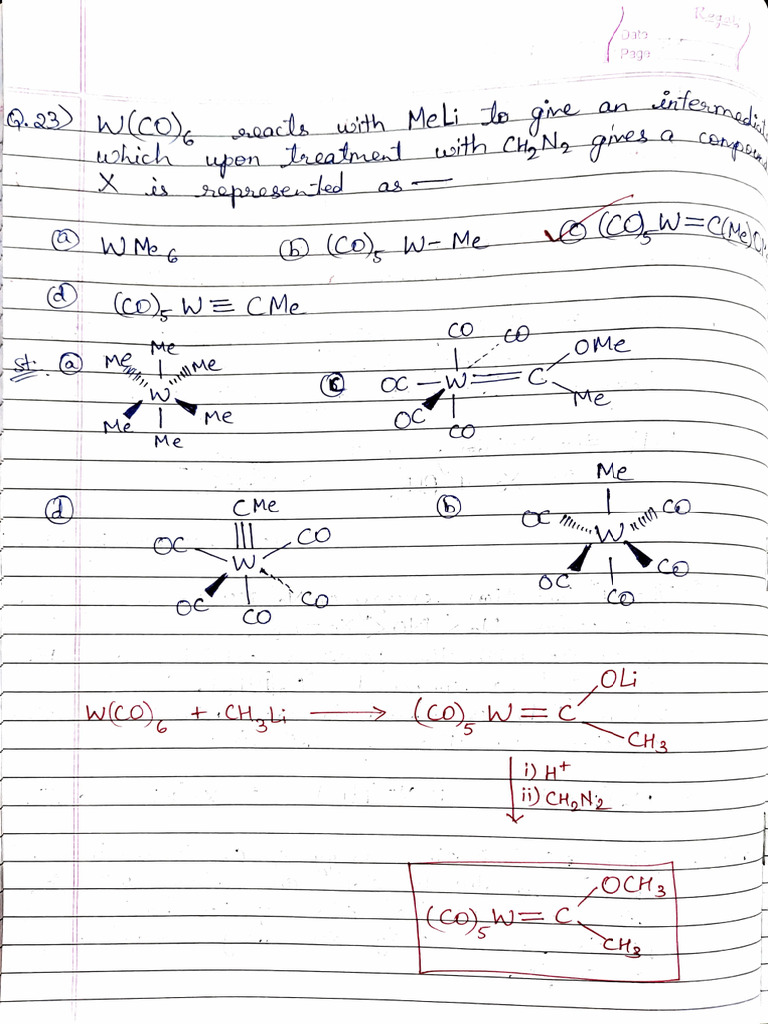 Date
Page
Q.23) W(CO)6 reacts with MeLi to give an intermediat
which upon treatment with CH2N2 gives a compoun
X is represented as —
(a) WMe6 (b) (CO)5 W-Me (c) (CO)5 W=C(Me)O
(d) (CO)5 W≡CMe
St: (a) Me Me Me W Me Me Me
(c) CO CO OC-W=C OMe Me OC CO
(d) CMe OC W CO OC CO CO
(b) Me OC W CO OC CO CO
W(CO)6 + CH3Li → (CO)5 W=C OLi CH3
i) H+
ii) CH2N2
(CO)5 W=C OCH3 CH3